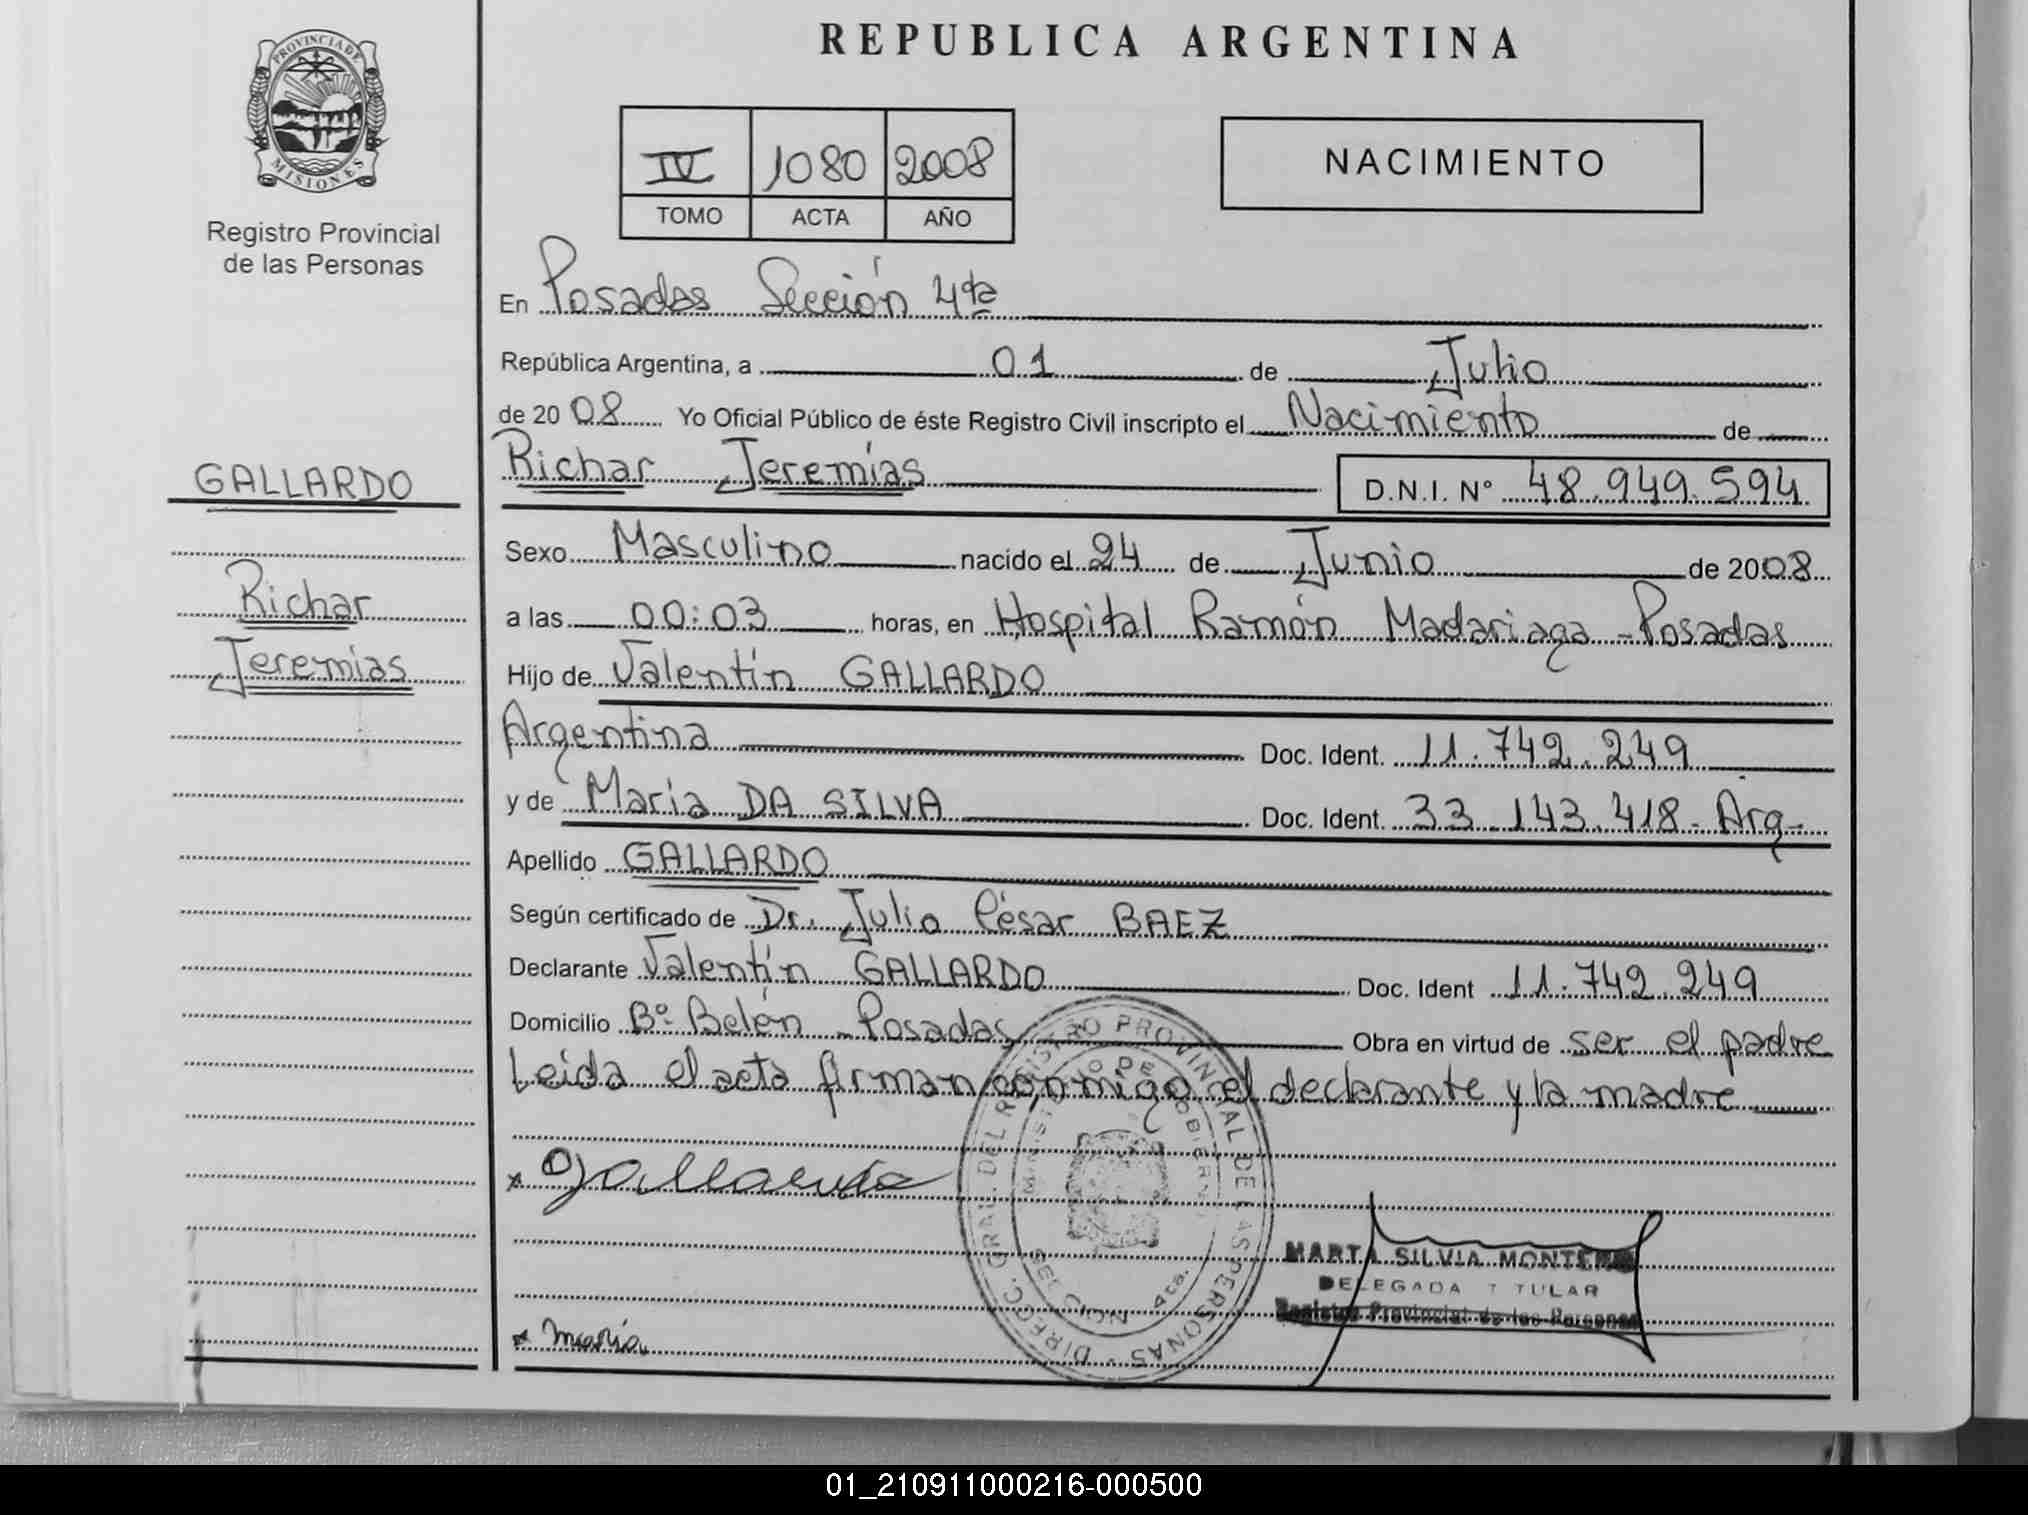 REPUBLICA ARGENTINA
PROVINCIA DE MISIONES
Registro Provincial
de las Personas
IV 1080 2008
TOMO ACTA AÑO
NACIMIENTO
En Posadas Sección 4ta
República Argentina, a 01 de Julio
de 2008 Yo Oficial Público de éste Registro Civil inscripto el Nacimiento de
Richar Jeremías D.N.I. Nº 48.949.594
GALLARDO
Richar
Jeremías
Sexo Masculino nacido el 24 de Junio de 2008
a las 00:03 horas, en Hospital Ramón Madariaga - Posadas
Hijo de Valentín GALLARDO
Argentina Doc. Ident. 11.742.249
y de María DA SILVA Doc. Ident. 33.143.418 - Arg -
Apellido GALLARDO
Según certificado de Dr. Julio César BAEZ
Declarante Valentín GALLARDO Doc. Ident 11.742.249
Domicilio Bº Belén - Posadas Obra en virtud de ser el padre
Leida el acta firman conmigo el declarante y la madre
x Gallardo
DIRECC. GRAL. DEL REGISTRO PROVINCIAL DE LAS PERSONAS
MINISTERIO DE GOBIERNO
SECCION 4ta.
MARTA SILVIA MONTERO
DELEGADA TITULAR
Registro Provincial de las Personas
x María
01_210911000216-000500